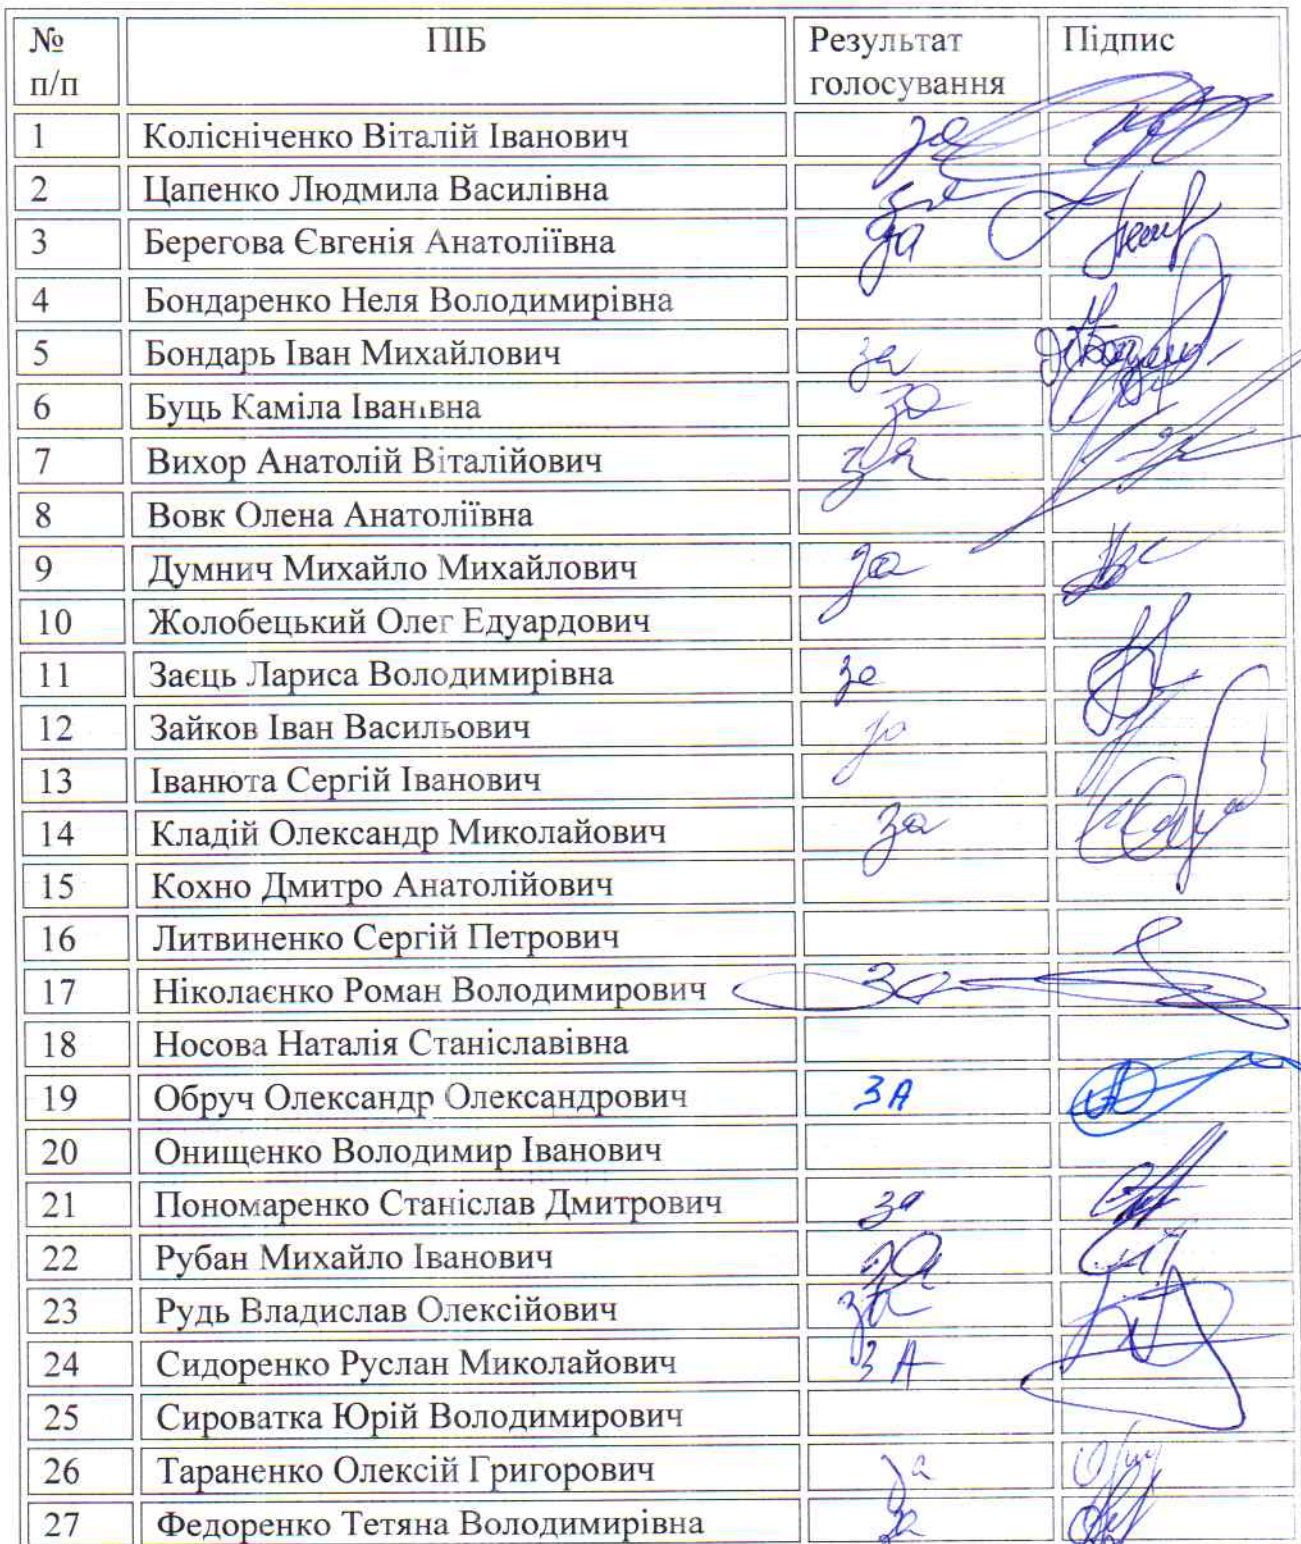 № п/п ПІБ Результат голосування Підпис
1 Колісніченко Віталій Іванович за
2 Цапенко Людмила Василівна за
3 Берегова Євгенія Анатоліївна за
4 Бондаренко Неля Володимирівна
5 Бондарь Іван Михайлович за
6 Буць Каміла Іванівна за
7 Вихор Анатолій Віталійович за
8 Вовк Олена Анатоліївна
9 Думнич Михайло Михайлович за
10 Жолобецький Олег Едуардович
11 Заєць Лариса Володимирівна за
12 Зайков Іван Васильович за
13 Іванюта Сергій Іванович
14 Кладій Олександр Миколайович за
15 Кохно Дмитро Анатолійович
16 Литвиненко Сергій Петрович
17 Ніколаєнко Роман Володимирович за
18 Носова Наталія Станіславівна
19 Обруч Олександр Олександрович ЗА
20 Онищенко Володимир Іванович
21 Пономаренко Станіслав Дмитрович за
22 Рубан Михайло Іванович за
23 Рудь Владислав Олексійович за
24 Сидоренко Руслан Миколайович ЗА
25 Сироватка Юрій Володимирович
26 Тараненко Олексій Григорович за
27 Федоренко Тетяна Володимирівна за